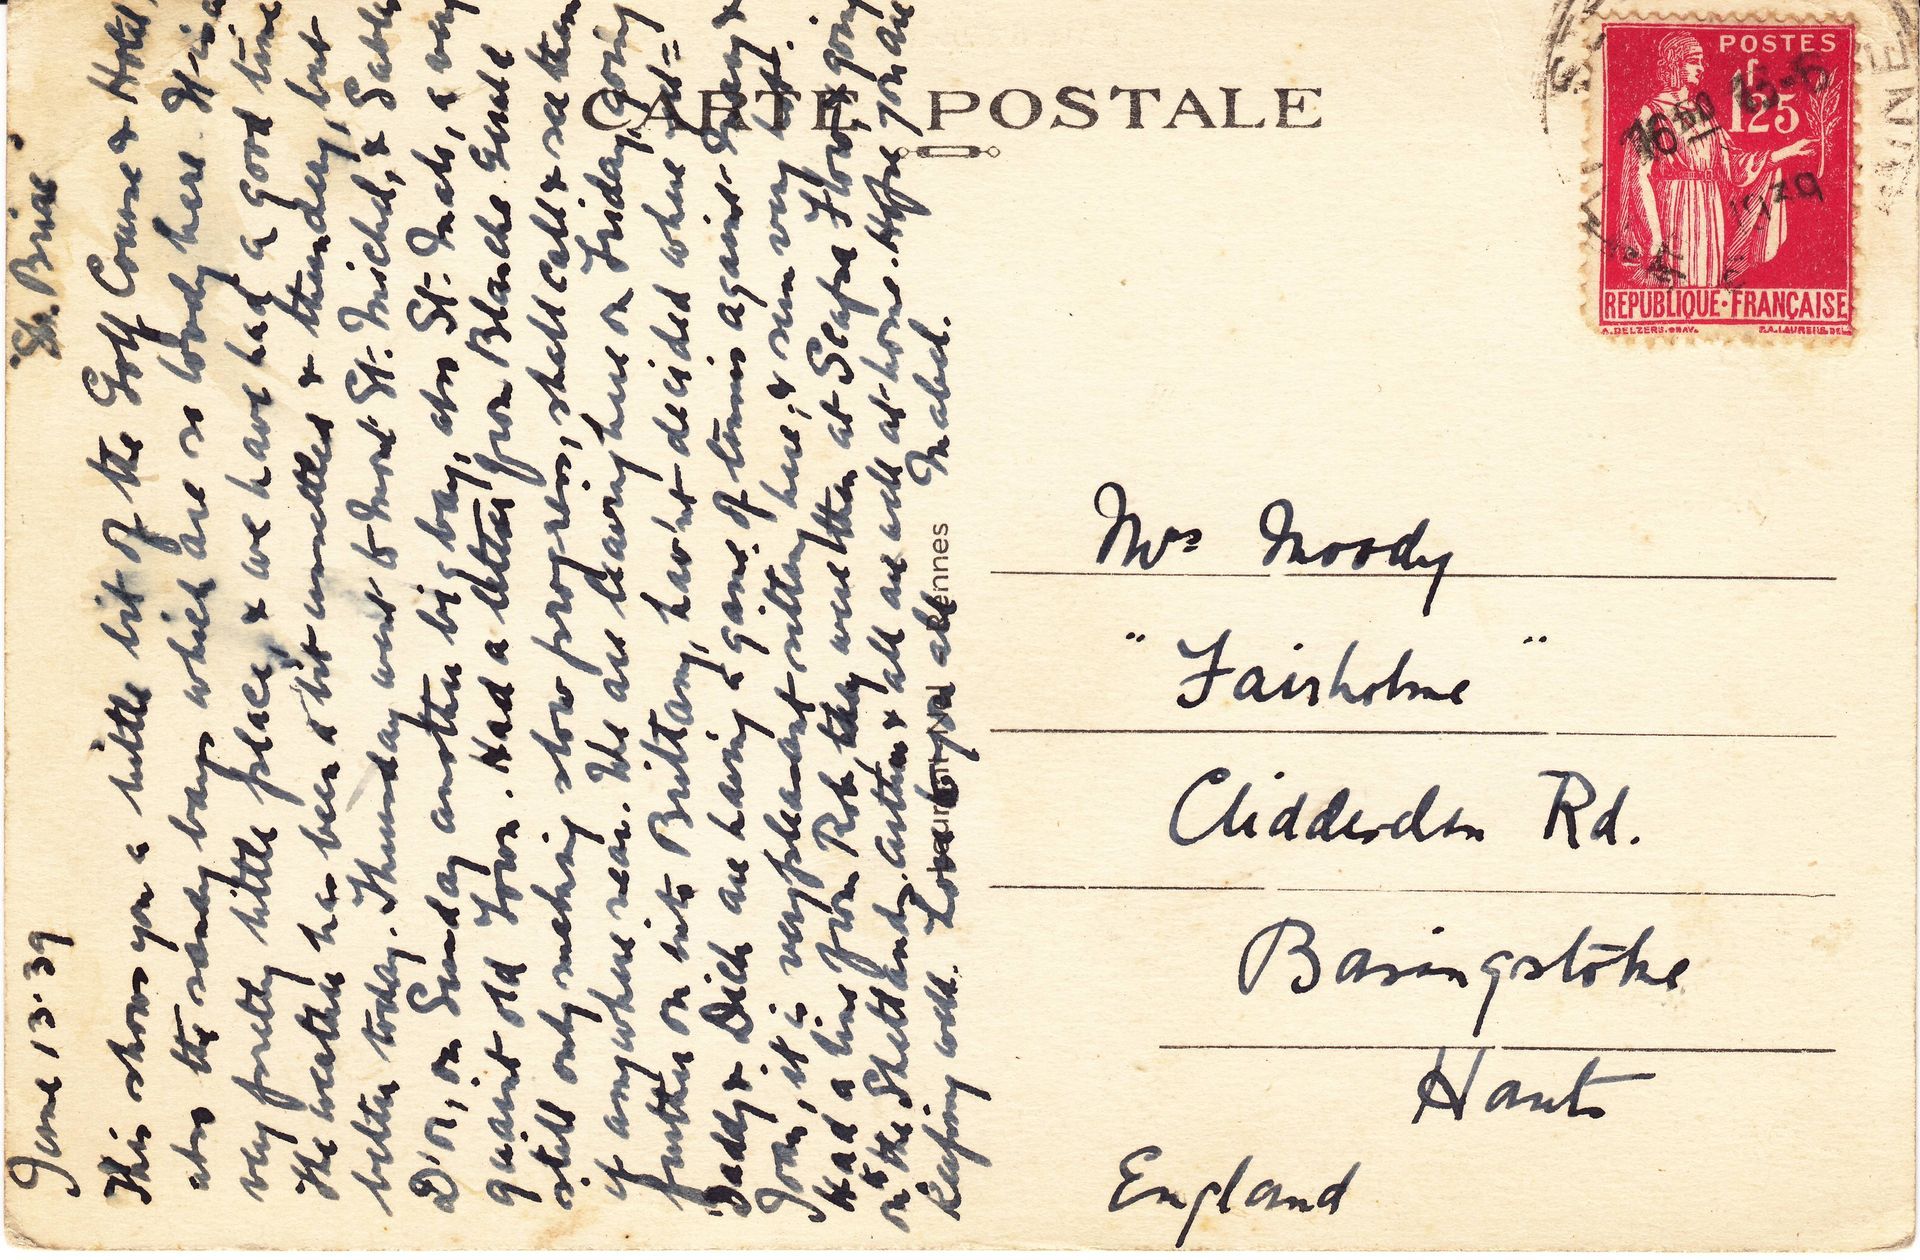 June 13·39 St. Briac.
This shows you a little bit of the Golf Course & Hotel,
also the sandy bays which are so lovely here. It is a
very pretty little place, & we have had a good time
The weather has been a bit unsettled & thundery, but
better today. Thursday went to Mont St. Michel, & Sables
D'or, on Sunday another big bay, also St. Malo, a very
quaint old Town. Had a letter from Blanche Gould
still only making slow progress, shall call & see them
if anywhere near. We are leaving here on Friday, going
further on into Brittany, hav'nt decided where yet=
Daddy & Dick are having a game of tennis against Mary &
Joan, it is very pleasant sitting here, & seem very hot.
Had a line from Rob they were then at Scapa Flow, & going
on to the Shetlands, & all are well at home. Hope you are
Keeping well. Love to you all Mabel.
CARTE POSTALE
Rennes
POSTES
1f
25
REPUBLIQUE·FRANÇAISE
16 50 13-6
1939
Mrs Moody
"Fairholme"
Clidderdon Rd.
Basingstoke
Hants
England